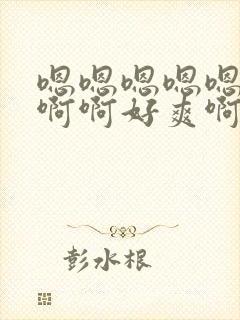 嗯嗯嗯嗯嗯
啊啊好爽啊
彭水根